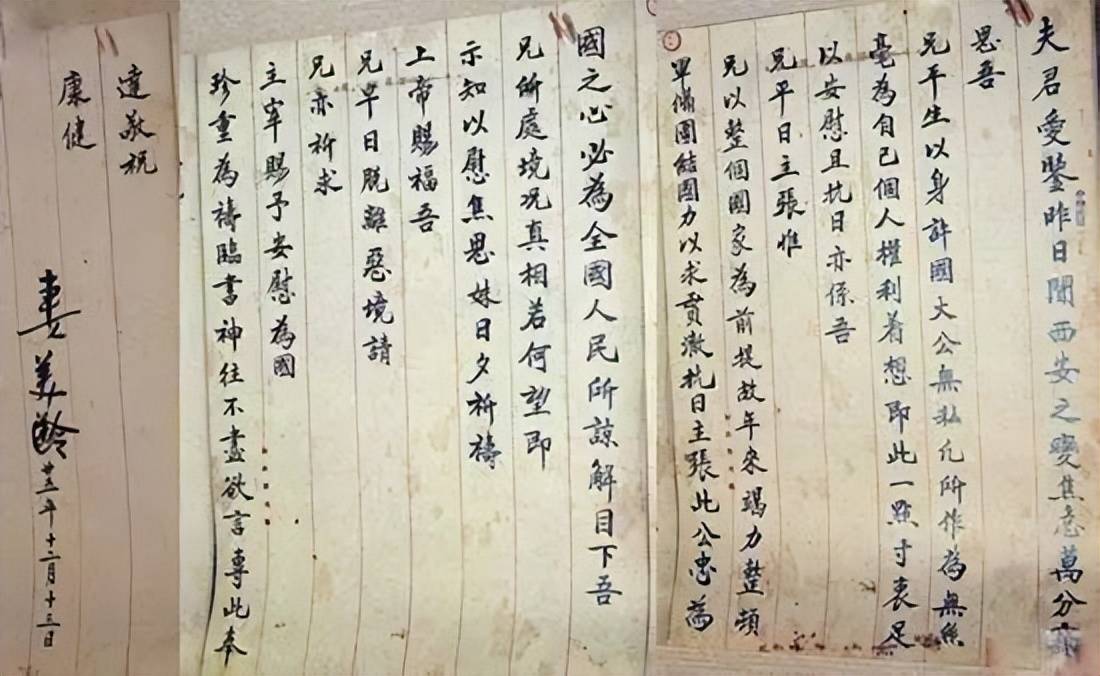 夫君愛鑒昨日聞西安之變焦急萬分
思吾
兄平生以身許國大公無私凡所作為無絲
毫為自己個人權利着想即此一點寸衷足
以安慰且抗日亦係吾
兄平日主張惟
兄以整個國家為前提故年來竭力整頓
軍備團結國力以求貫澈抗日主張此公忠為
國之心必為全國人民所諒解目下吾
兄所處境況真相若何望即
示知以慰焦思妹日夕祈禱
上帝賜福吾
兄早日脫離惡境請
兄亦祈求
主宰賜予安慰為國
珍重為禱臨書神往不盡欲言專此奉
達敬祝
康健
妻美齡
廿五年十二月十三日